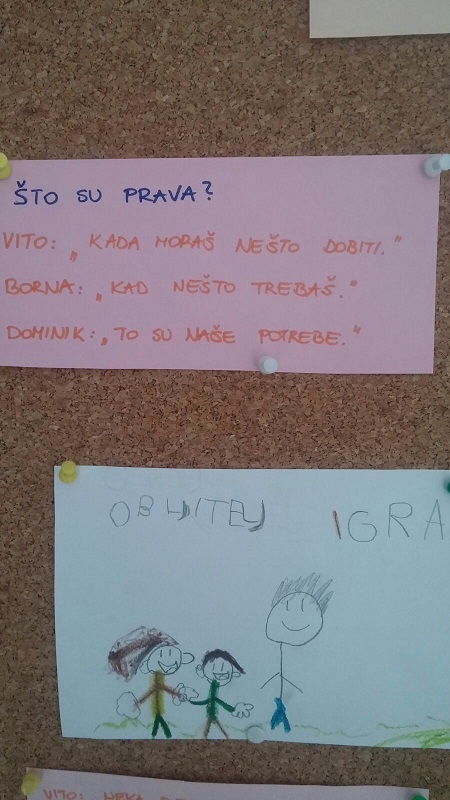 ŠTO SU PRAVA?
VITO: „KADA MORAŠ NEŠTO DOBITI."
BORNA: „KAD NEŠTO TREBAŠ."
DOMINIK: „TO SU NAŠE POTREBE."
OBLJITELJ IGRA
VITO: